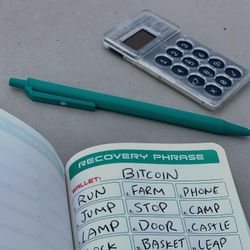 RECOVERY PHRASE
WALLET: BITCOIN
RUN FARM PHONE
JUMP STOP CAMP
LAMP DOOR CASTLE
BASKET LEAP